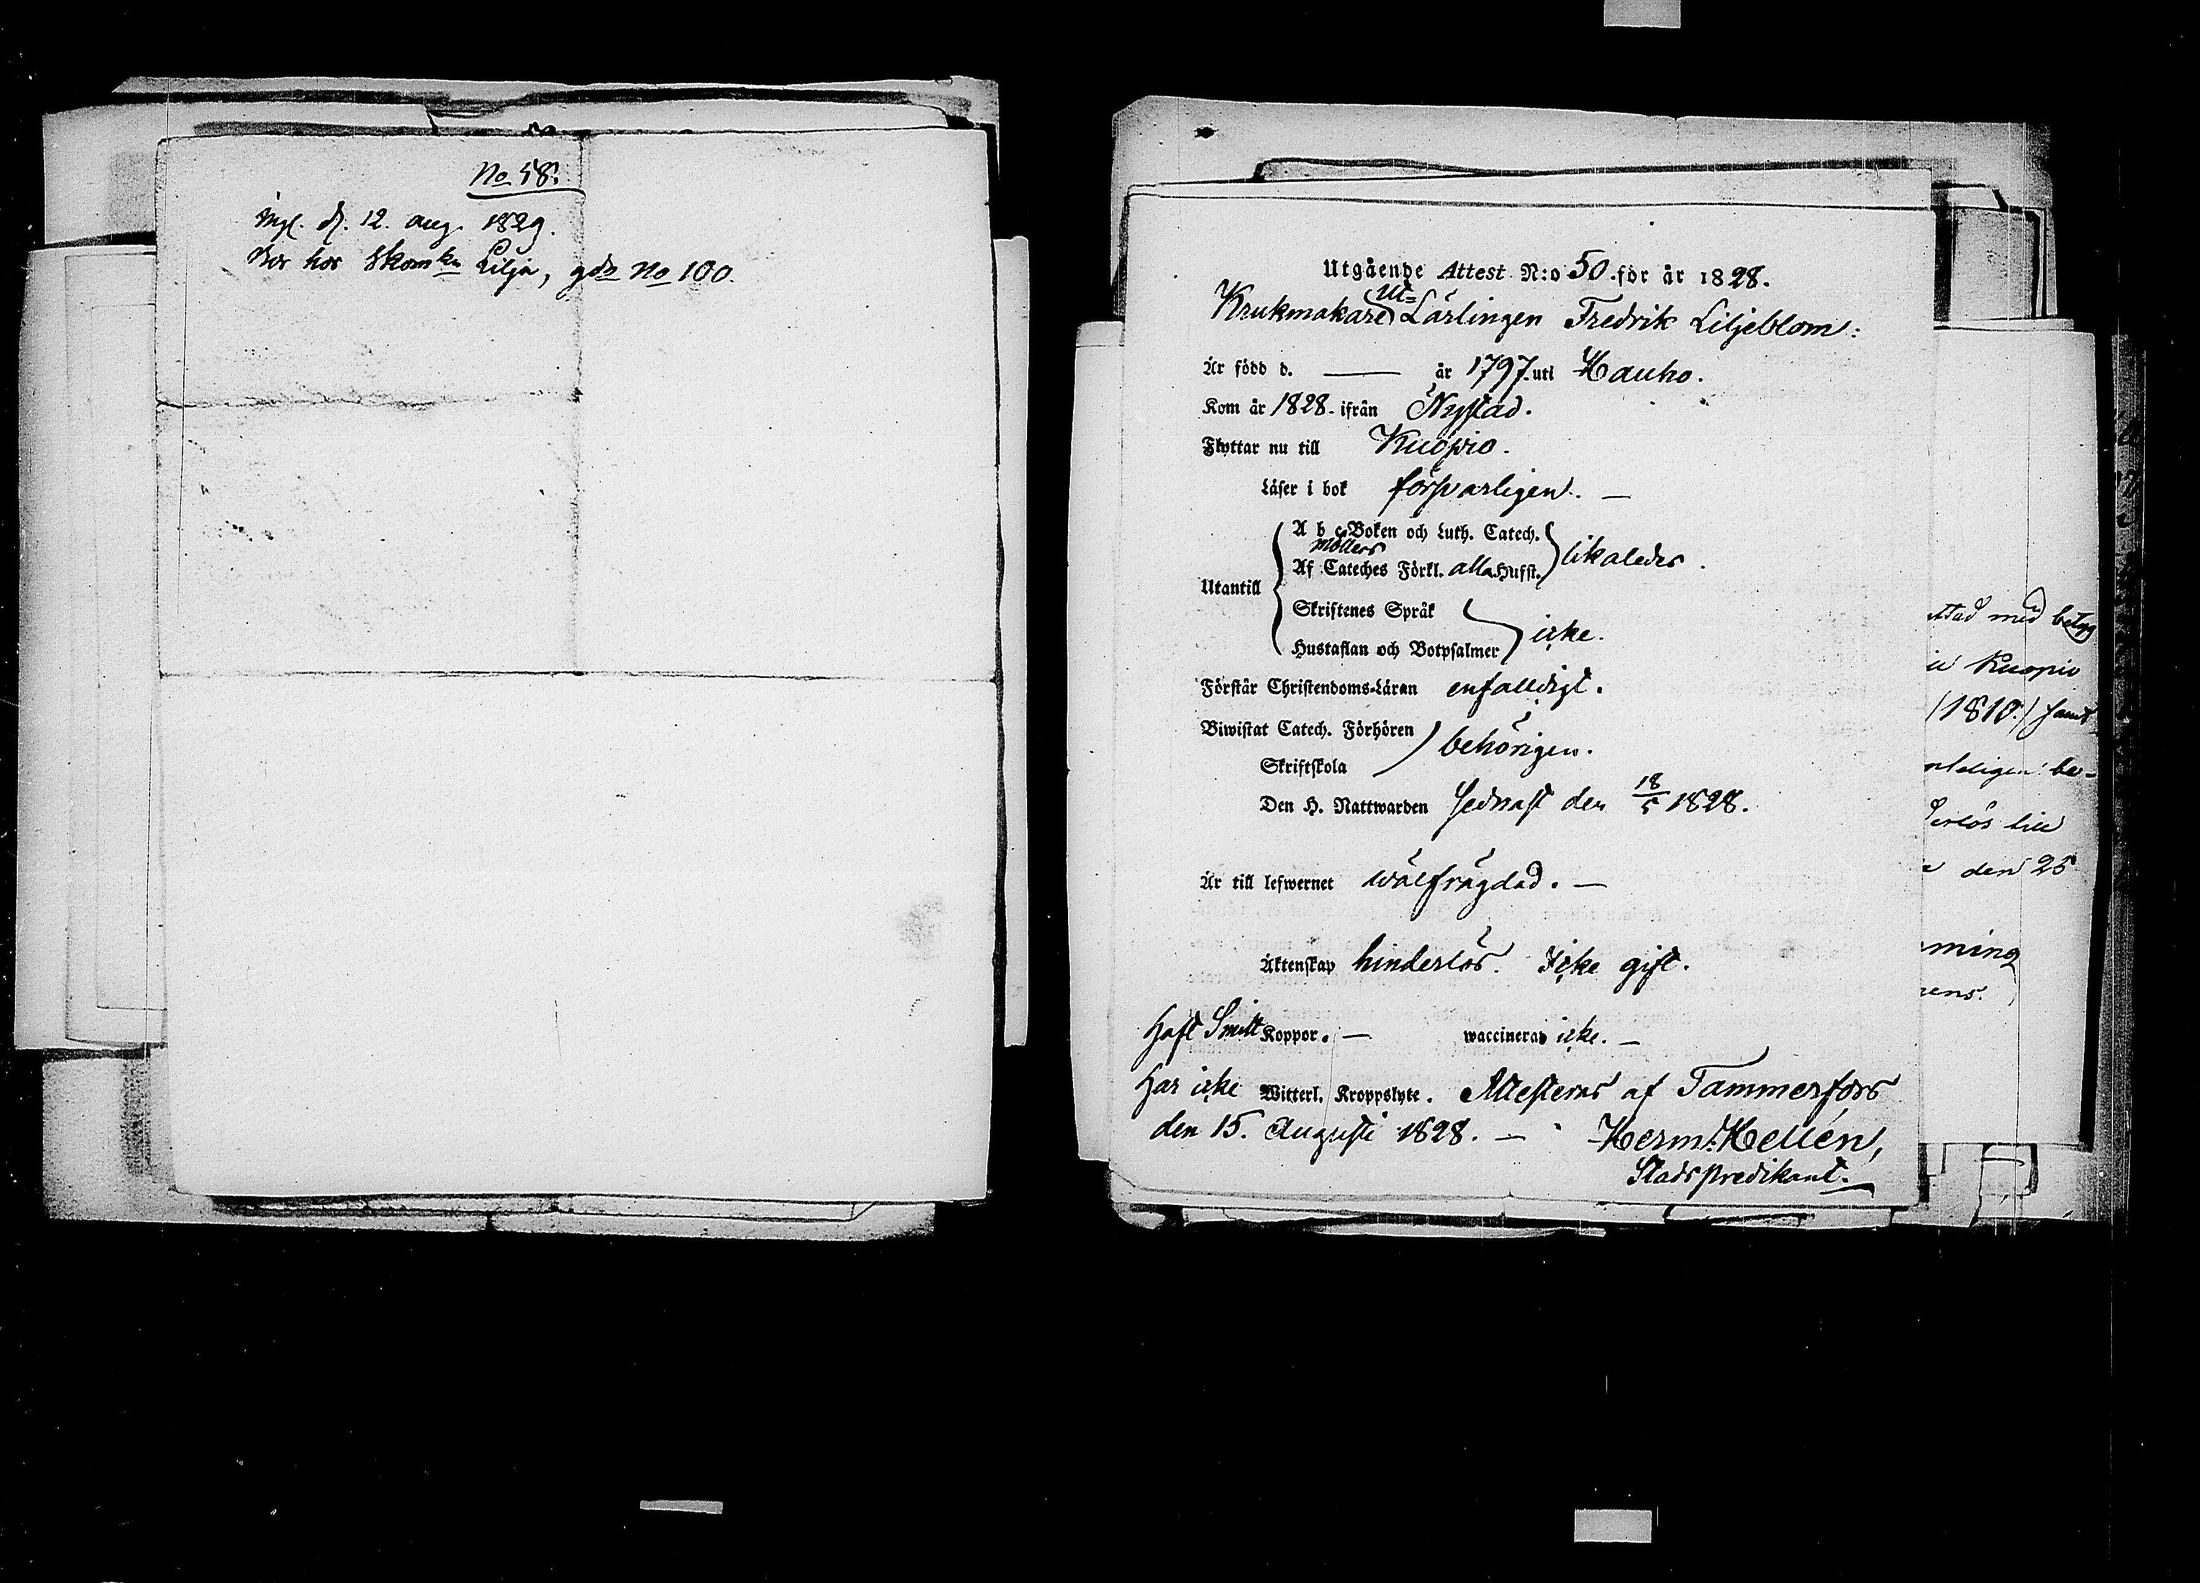 No 58.
ingl. d. 12. aug. 1829.
Bor hos Skomkn Lilja, gdn No 100.
Utgående Attest N:o 50. för år 1828.
Ut=
Krukmakare Lärlingen Fredrik Liljeblom:
Är född d. —— år 1797. uti Hauho.
Kom år 1828. ifrån Nystad.
Flyttar nu till Kuopio.
Läser i bok försvarligen. —
A b c Boken och Luth. Catech.
Möllers
Af Cateches Förkl. alla Hufst. likaledes.
Utantill
Skriftenes Språk
Hustaflan och Botpsalmer icke.
Förstår Christendoms-Läran enfalldigt.
Biwistat Catech. Förhören
behörigen.
Skriftskola
Den H. Nattwarden sednast den 18/5 1828.
Är till lefwernet wälfrägdad. —
Äktenskap hinderlös. Icke gift.
Haft Smitt Koppor. — waccinerad icke. —
Har icke Witterl. Kroppslyte. Attesteras af Tammerfors
den 15. Augusti 1828. — Herm. Hellén,
Stadspredikant.
stad med betyg
Kuopio
(1810.) samt
be-
den 25
ming